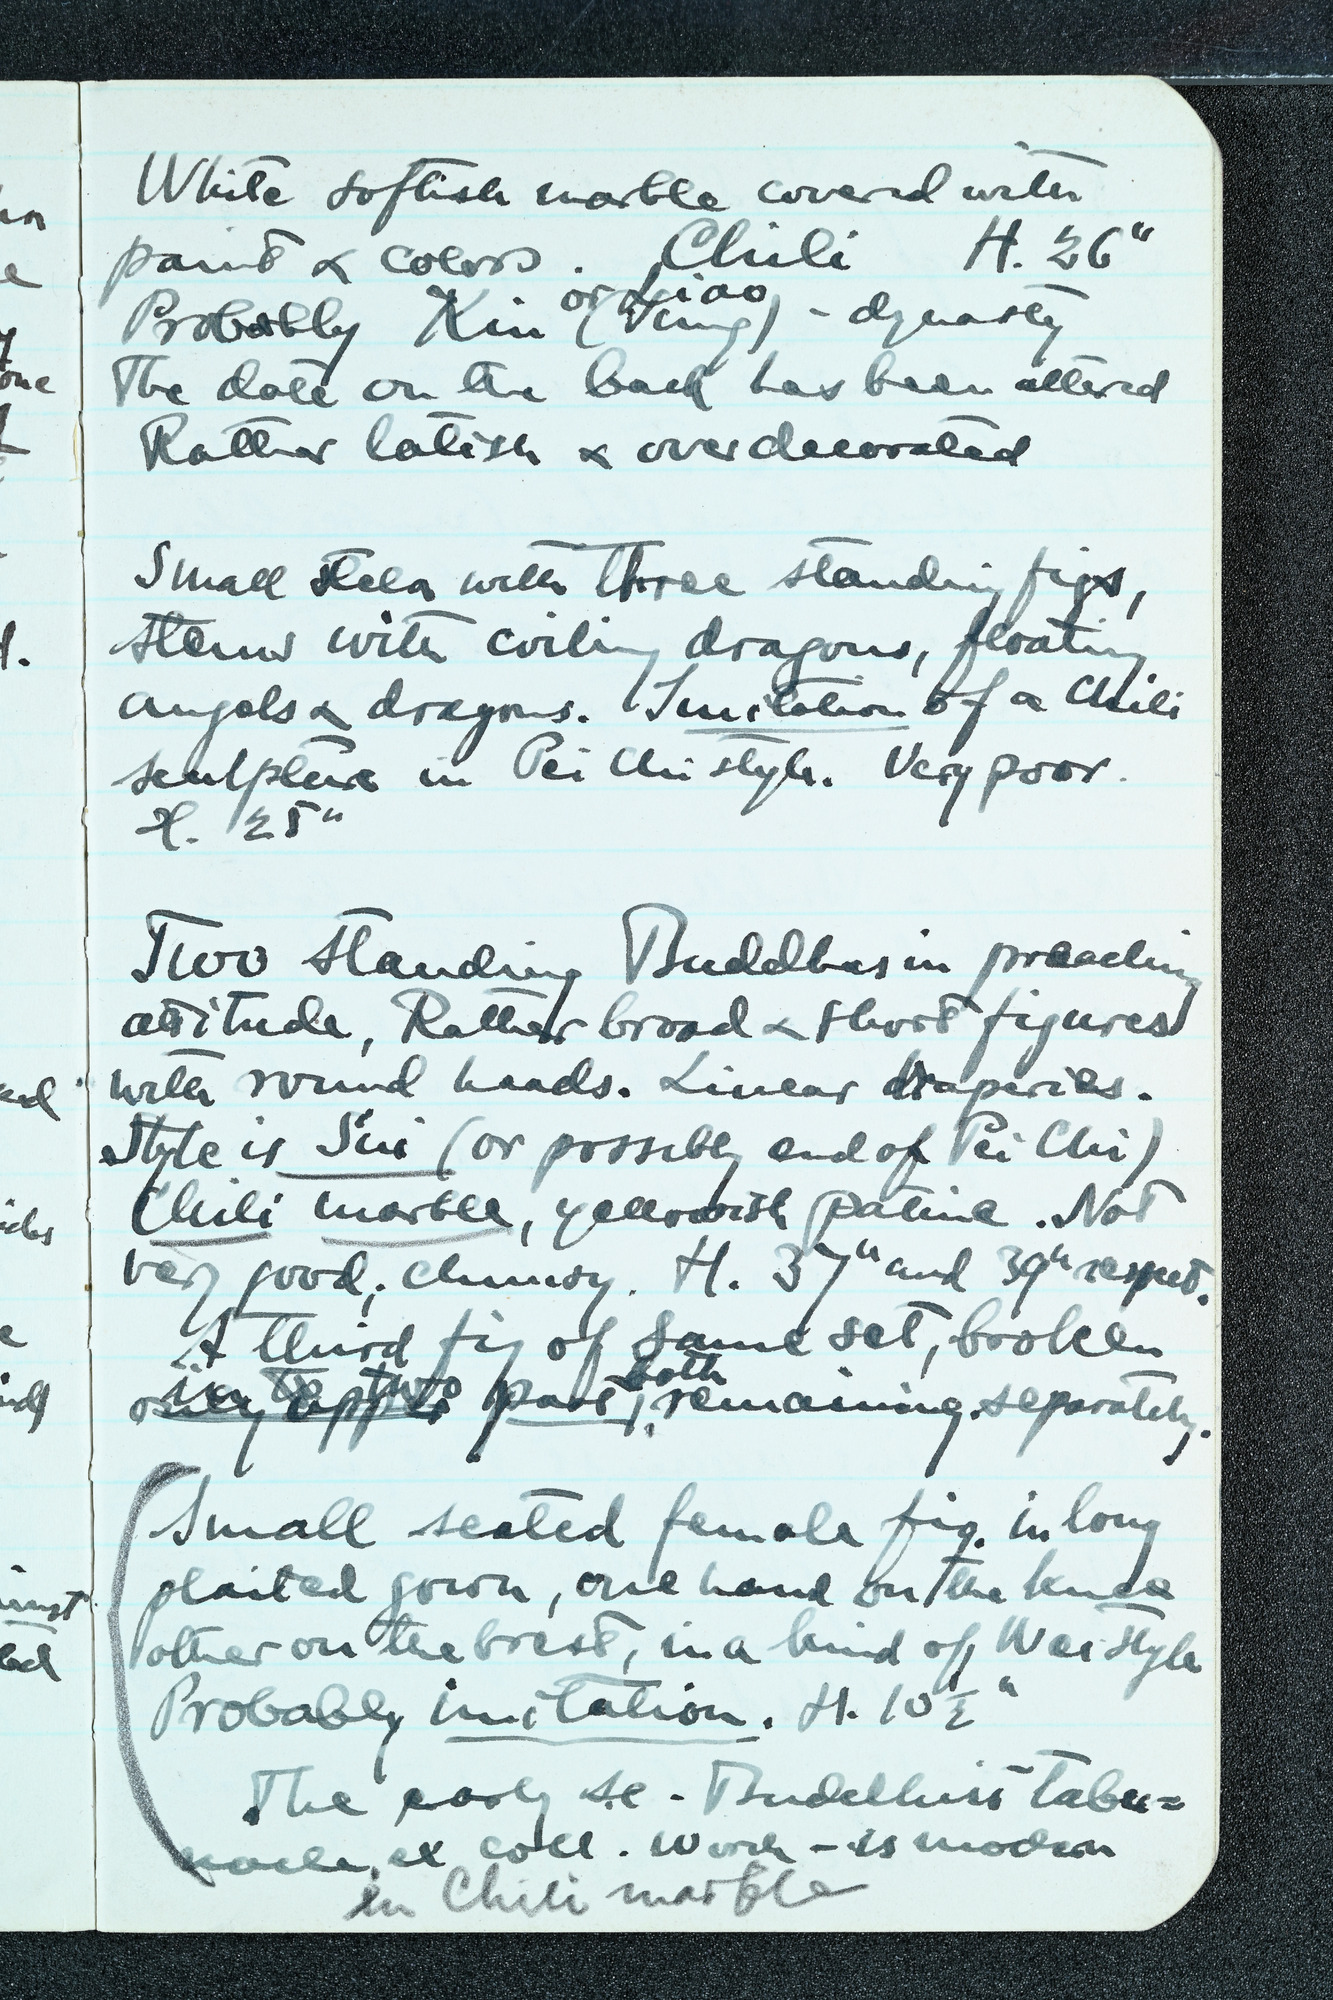 White softish marble covered with
paint & colors. Chili H. 26"
or Liao
Probably Kin (Yung) - dynasty
The date on the back has been altered
Rather latish & overdecorated
Small stela with three standing figs,
stems with coiling dragons, floating
angels & dragons. Imitation of a Chili
sculpture in Pei Chi style. Very poor.
H. 25"
Two standing Buddhas in preaching
attitude, Rather broad & short figures
with round heads. Linear draperies.
Style is Sui (or possibly end of Pei Chi)
Chili marble, yellowish patina. Not
very good; clumsy. H. 37" and 39" respect.
A third fig of same set, broken
in two both
only upper part, remaining separately.
Small seated female fig. in long
plaited gown, one hand on the knee
other on the breast, in a kind of Wei style
Probably imitation. H. 10½"
The early sc. - Buddhist taber=
nacle, ex coll. Worch - is modern
in Chili marble